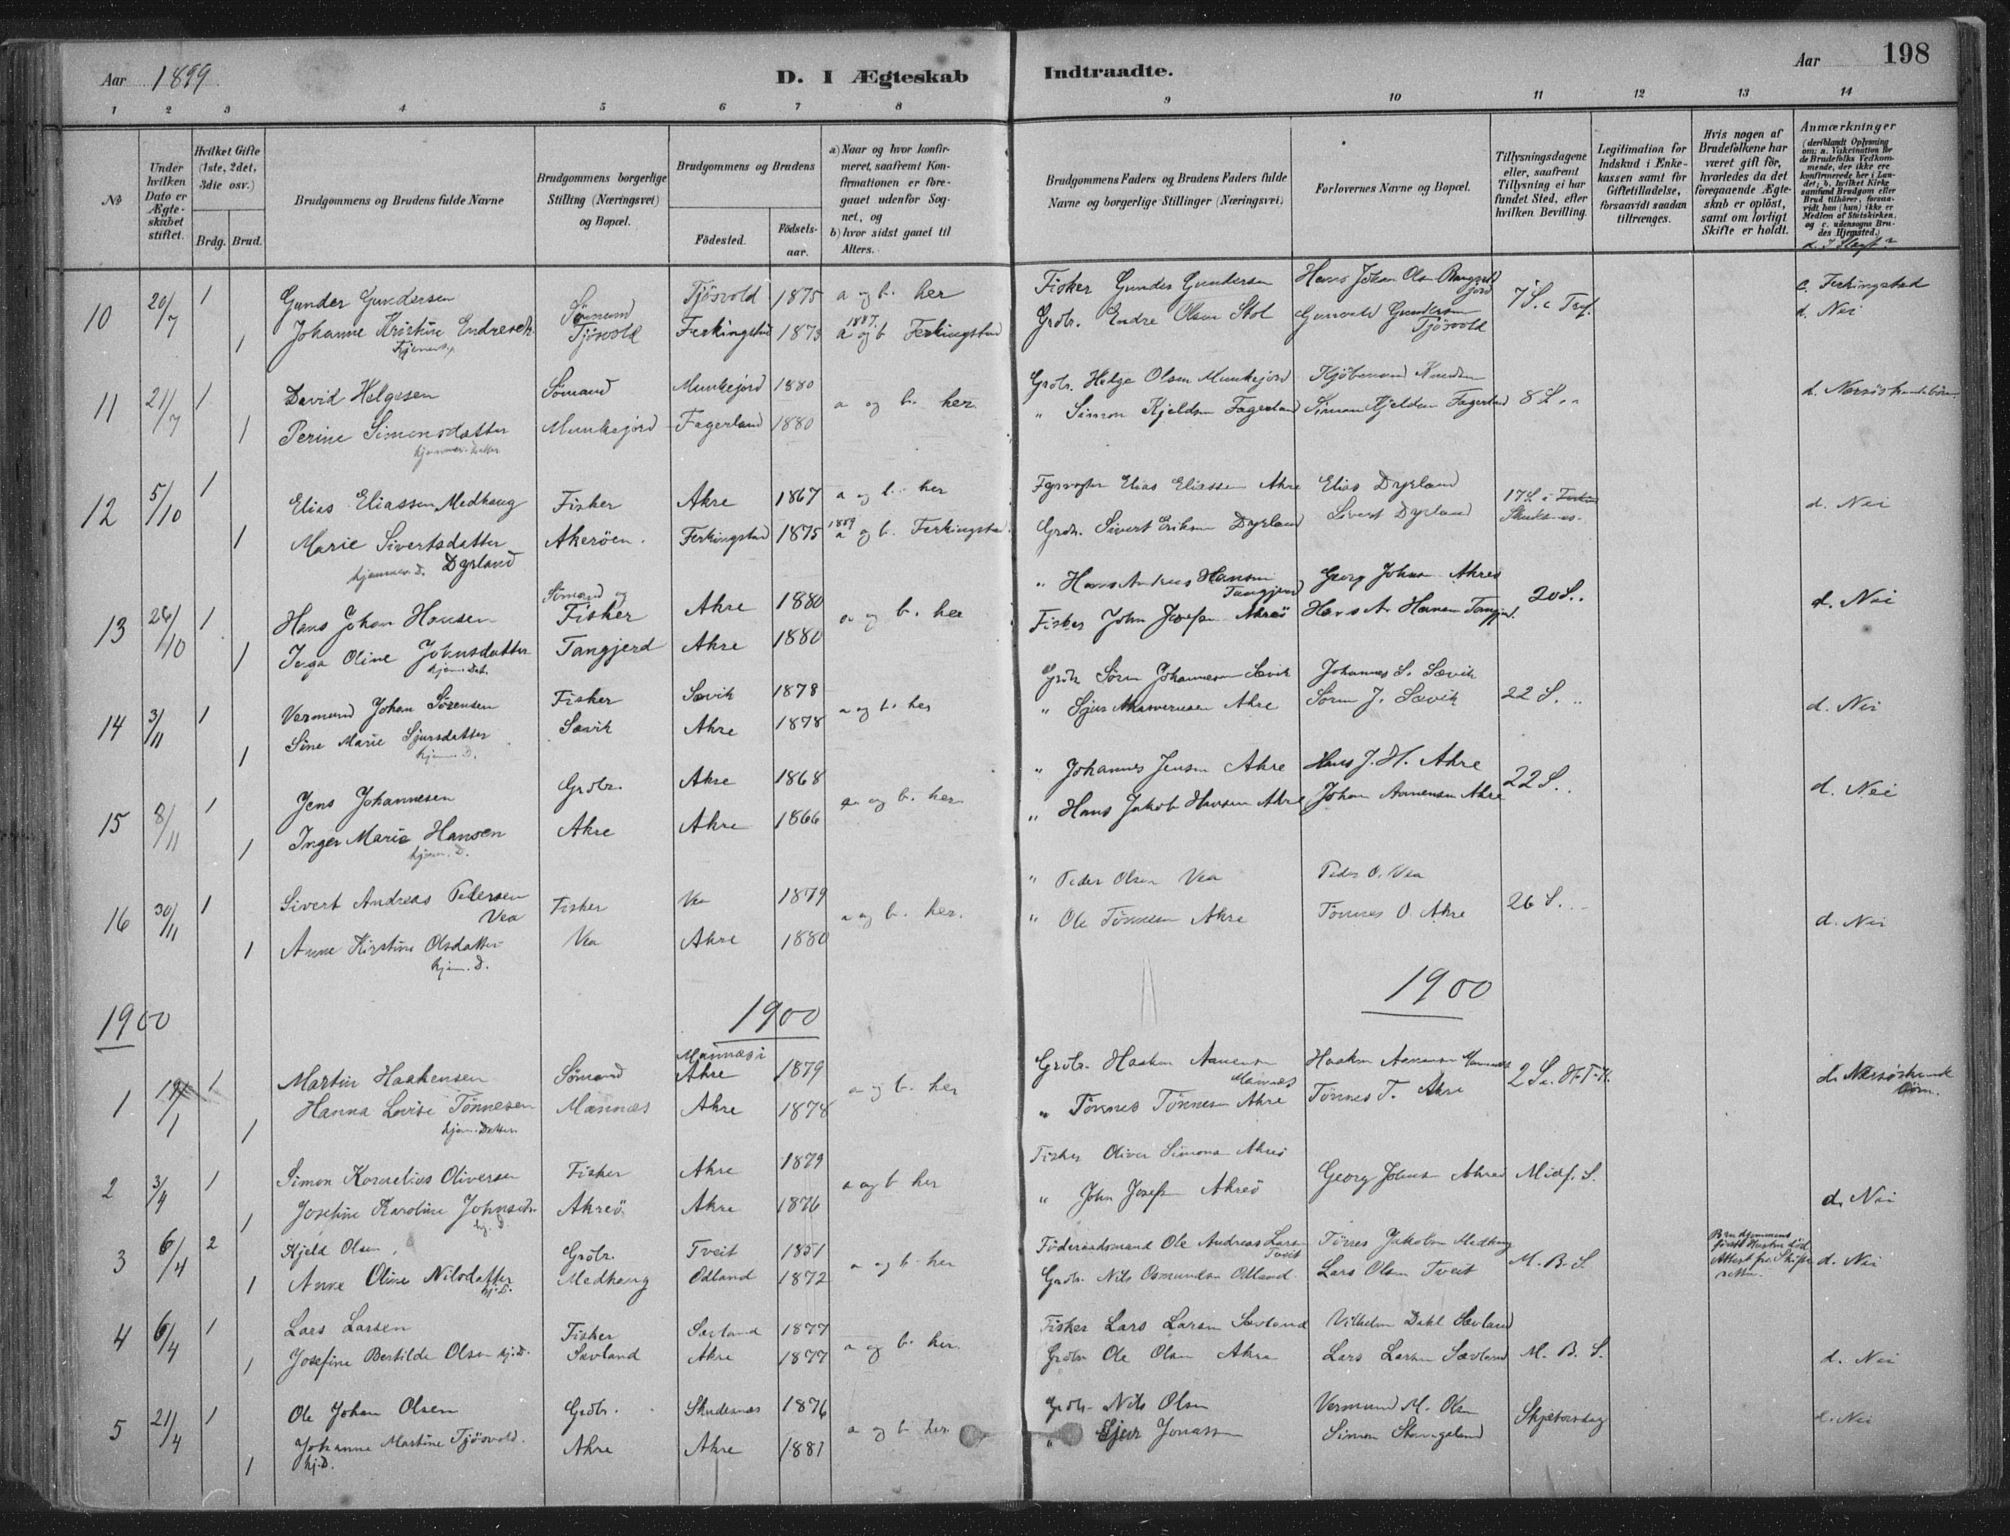 Aar 1899. D. I Ægteskab Indtraadte. Aar 198
1 2 3 4 5 6 7 8 9 10 11 12 13 14
№
Under hvilken Dato er Ægteskabet stiftet.
Hvilket Gifte (1ste, 2det, 3die osv.)
Brdg. Brud.
Brudgommens og Brudens fulde Navne
Brudgommens borgerlige Stilling (Næringsvei) og Bopæl.
Brudgommens og Brudens
Fødested. Fødselsaar.
a) Naar og hvor konfirmeret, saafremt Konfirmationen er foregaaet udenfor Sognet, og
b) hvor sidst gaaet til Alters.
Brudgommens Faders og Brudens Faders fulde Navne og borgerlige Stillinger (Næringsvei)
Forlovernes Navne og Bopæl.
Tillysningsdagene eller, saafremt Tillysning ei har fundet Sted, efter hvilken Bevilling.
Legitimation for Indskud i Enkekassen samt for Giftetilladelse, forsaavidt saadan tiltrænges.
Hvis nogen af Brudefolkene har været gift før, hvorledes da det foregaaende Ægteskab er opløst, samt om lovligt Skifte er holdt.
Anmærkninger (deriblandt Oplysning om: a. Vakcination for de Brudefolks Vedkommende, der ikke ere konfirmerede her i Landet; b. hvilket Kirkesamfund Brudgom eller Brud tilhører, forsaavidt han (hun) ikke er Medlem af Statskirken, og c. udensogns Brudes Hjemsted.)
10 20/7 1 Gunder Gundersen Sømand Tjøsvold 1875 a og b. her Fisker Gunder Gundersen Hans Johan Olsen 7 S. e Tref. c. Ferkingstad
1 Johanne Kristine Endresdtr. Tjøsvold Ferkingstad 1873 1887. a og b. Ferkingstad Grdbr. Endre Olsen Stol Gunvald Gundersen Tjøsvold d. Nei
11 21/7 1 David Helgesen Sømand Munkejord 1880 a og b. her Grdbr. Helge Olsen Munkejord Knudsen 8 S. „ d. Næssøskendebørn
1 Perine Simonsdatter Munkejord Fagerland 1880 „ Simon Kjeldsen Fagerland Simon Kjeldsen Fagerland
hjemmev. Datter
12 5/10 1 Elias Eliassen Medhaug Fisker Akre 1867 a og b. her Elias Eliassen Akre Elias Dyrland 17 S. i d. Nei
1 Marie Sivertsdatter Akerøen. Ferkingstad 1875 1889 a og b. Ferkingstad. Grdbr. Sivert Eriksen Dyrland Sivert Dyrland Skudesnes.
hjemmev. D. Dyrland
13 26/10 1 Hans Johan Hansen Sømand og Fisker Akre 1880 a og b. her „ Hans Andreas Hansen Tangjerd Georg Johns. Akreø 20 S. . d. Nei
1 Inga Oline Johnsdatter Tangjerd Akre 1880 Fisker John Josefsen Akreø Hans A. Hansen Tangjerd.
hjem. Dat.
14 3/11 1 Vermund Johan Sørensen Fisker Sævik 1878 a og b. her Grdbr. Søren Johannesen Sævik Johannes S. Sævik 22 S. „ d. Nei
1 Sine Marie Sjursdatter Sævik Akre 1878 „ Sjur Akre Søren J. Sævik
hjem. D.
15 8/11 1 Jens Johannesen Grdbr. Akre 1868 a og b. her. „ Johannes Jensen Akre Hans J. H. Akre 22 S. . d. Nei
1 Inger Marie Hansen Akre Akre 1866 „ Hans Jakob Hansen Akre Johan Akre
hjem. D.
16 30/11 1 Sivert Andreas Pedersen Vea Fisker Vea 1879 a og b. her. „ Peder Olsen Vea Peder O. Vea 26 S. . d. Nei
1 Anne Kirstine Olsdatter Vea Akre 1880 „ Ole Tønnesen Akre Tønnes O. Akre
hjem. D.
1900 1900 1900
1 19/1 1 Martin Haakensen Sømand Mannæs i Akre 1879 a og b. her Grdbr. Haaken Mannæs Haaken Mannæs 2 S. d. Næssøskendebørn.
1 Hanna Lovise Tønnesen Mannæs Akre 1878 „ Tønnes Tønnesen Akre Tønnes T. Akre
hjem. Datter
2 3/4 1 Simon Kornelius Oliversen Fisker Akre 1879 a og b her Fisker Oliver Simons. Akreø Georg Johns. Akreø Midf. S. d. Nei
1 Josefine Karoline Johnsdtr. Akreø Akre 1876 „ John Josefs. Akreø
hj. D.
3 6/4 2 Kjeld Olsen Grdbr. Tveit 1851 a og b. her Føderaadsmand Ole Andreas Larsen Tveit Tønes Jakobsen Medhaug M. B. S. d. Nei
1 Anne Oline Nilsdatter Medhaug Odland 1872 Grdbr. Nils Osmundsen Odland. Lars Olsen Tveit
hj. D.
Brudgommens første Hustru død Attest fra Skifteretten.
4 6/4 1 Lars Larsen Fisker Sævland 1877 a og b. her. Fisker Lars Larsen Sævland Vilhelm Dahl Sævland M. B. S.
1 Josefine Bertilde Olsen hj. D. Sævland Akre 1877 Grdbr. Ole Olsen Akre Lars Larsen Sævland d. Nei
5 21/4 1 Ole Johan Olsen Grdbr. Skudesnæs 1876 a og b. her. Grdbr. Nils Olsen Vermund M. Olsen Skjærtorsdag d. Nei
1 Johanne Martine Tjøsvold. Akre Akre 1881 „ Sjur Jonassen Simon Stangeland
hj. D.